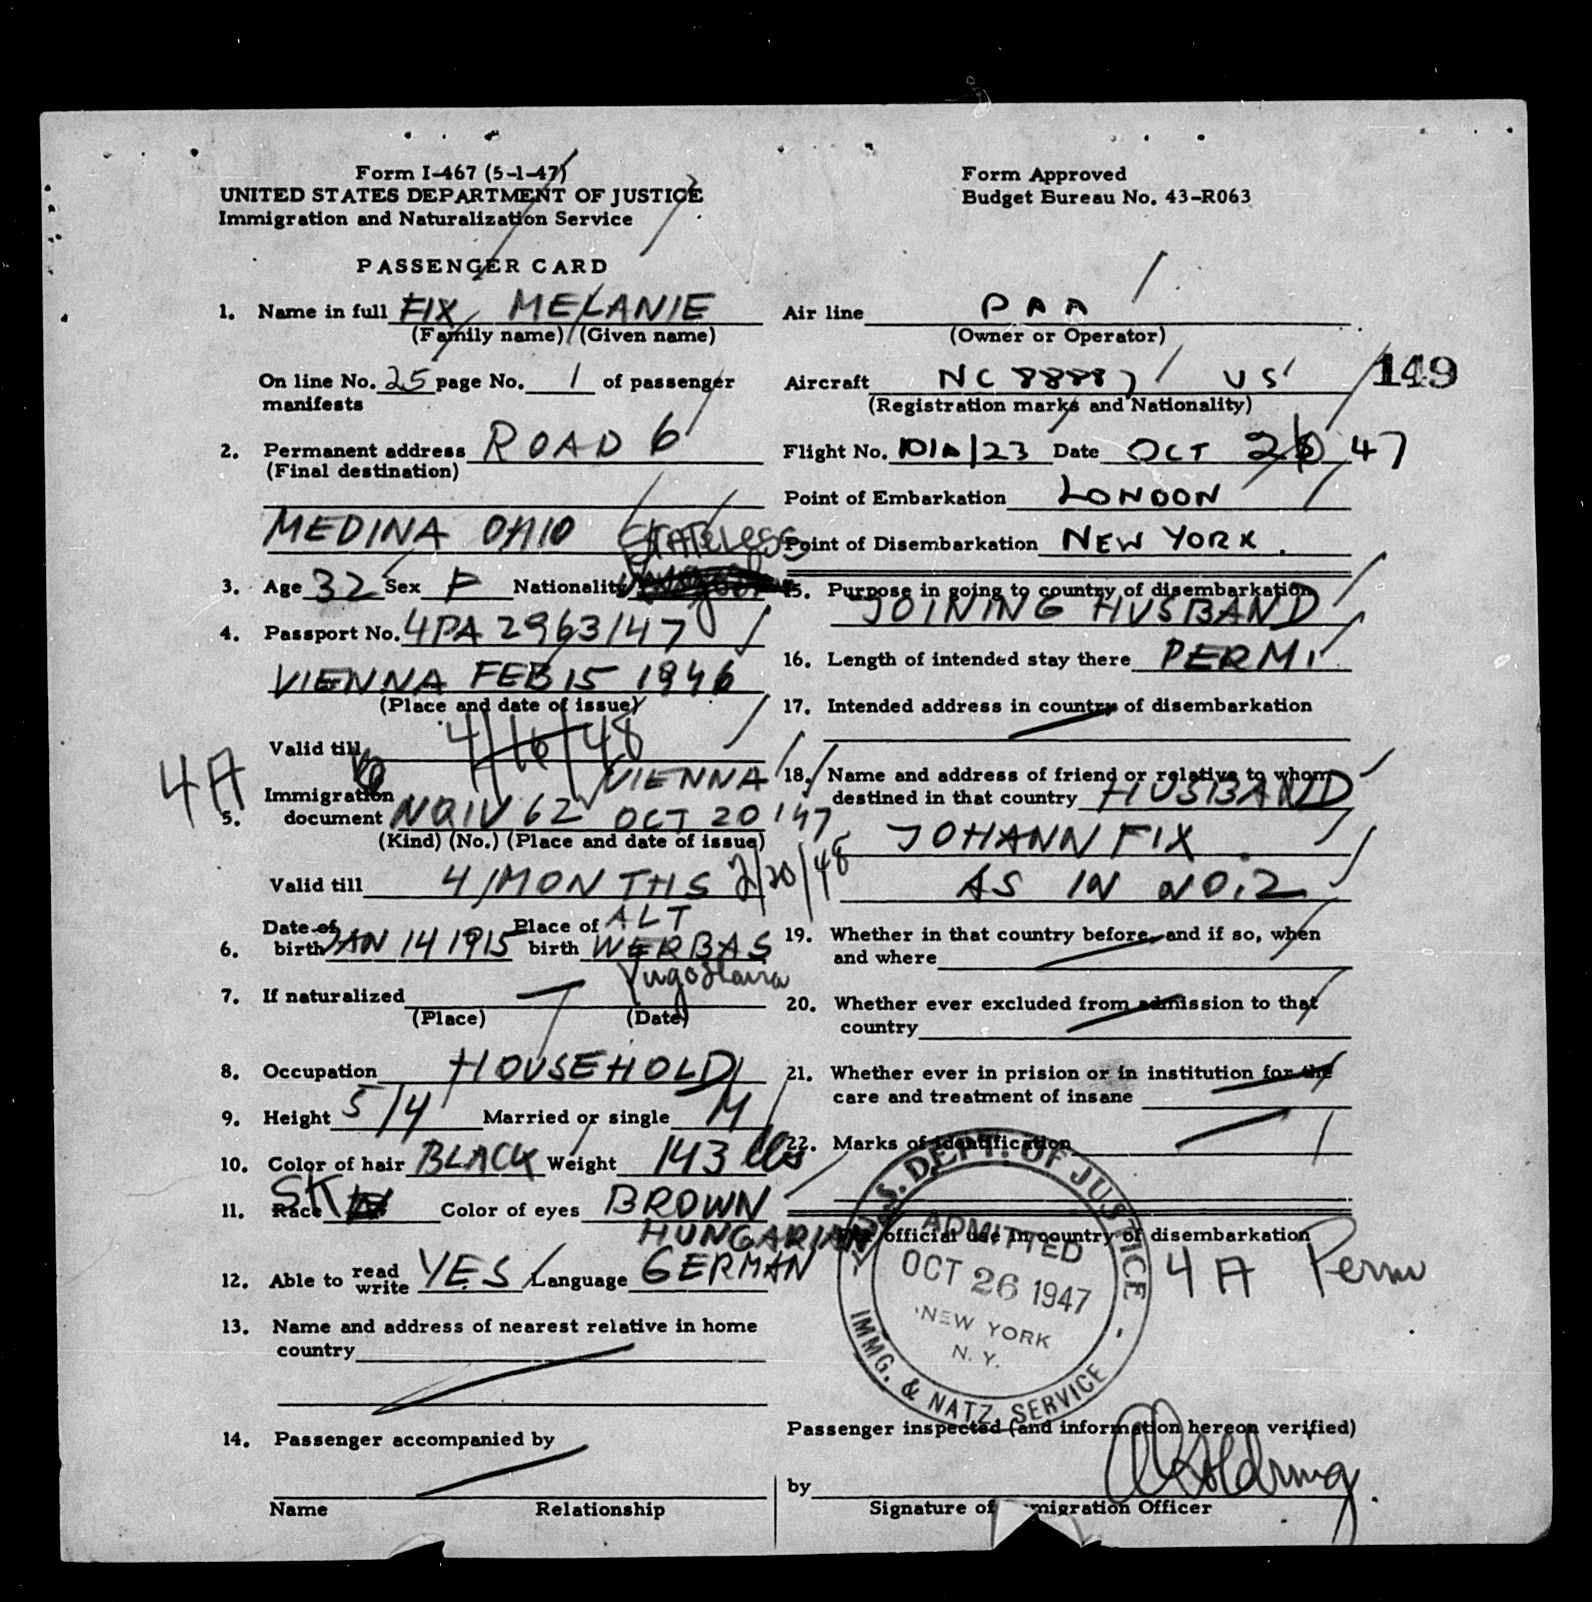 Form I-467 (5-1-47)
UNITED STATES DEPARTMENT OF JUSTICE
Immigration and Naturalization Service
PASSENGER CARD
1. Name in full FIX, MELANIE
(Family name) (Given name)
On line No. 25 page No. 1 of passenger
manifests
2. Permanent address ROAD 6
(Final destination)
MEDINA OHIO STATELESS
3. Age 32 Sex F Nationality
4. Passport No. 4PA 2963/47
VIENNA FEB 15 1946
(Place and date of issue)
Valid till 4/16/48
4A
VIENNA
Immigration
5. document NQIV 62 OCT 20 '47
(Kind) (No.) (Place and date of issue)
Valid till 4 MONTHS 2/20/48
Date of Place of ALT
6. birth JAN 14 1915 birth WERBAS
Yugoslavia
7. If naturalized
(Place) (Date)
8. Occupation HOUSEHOLD
9. Height 5/4 Married or single M
10. Color of hair BLACK Weight 143 lbs
11. Race Color of eyes BROWN
HUNGARIAN
12. Able to read write YES Language GERMAN
13. Name and address of nearest relative in home
country
14. Passenger accompanied by
Name Relationship
Form Approved
Budget Bureau No. 43-R063
Air line PAA
(Owner or Operator)
Aircraft NC 88887 US
149
(Registration marks and Nationality)
Flight No. 101A/23 Date OCT 26 47
Point of Embarkation LONDON
Point of Disembarkation NEW YORK.
15. Purpose in going to country of disembarkation
JOINING HUSBAND
16. Length of intended stay there PERM.
17. Intended address in country of disembarkation
18. Name and address of friend or relative to whom
destined in that country HUSBAND
JOHANN FIX
AS IN NO. 2
19. Whether in that country before, and if so, when
and where
20. Whether ever excluded from admission to that
country
21. Whether ever in prision or in institution for the
care and treatment of insane
22. Marks of identification
For official use in country of disembarkation
4A Perm
U.S. DEPT. OF JUSTICE
ADMITTED
OCT 26 1947
NEW YORK
N. Y.
IMMG. & NATZ. SERVICE
Passenger inspected (and information hereon verified)
by
Signature of Immigration Officer